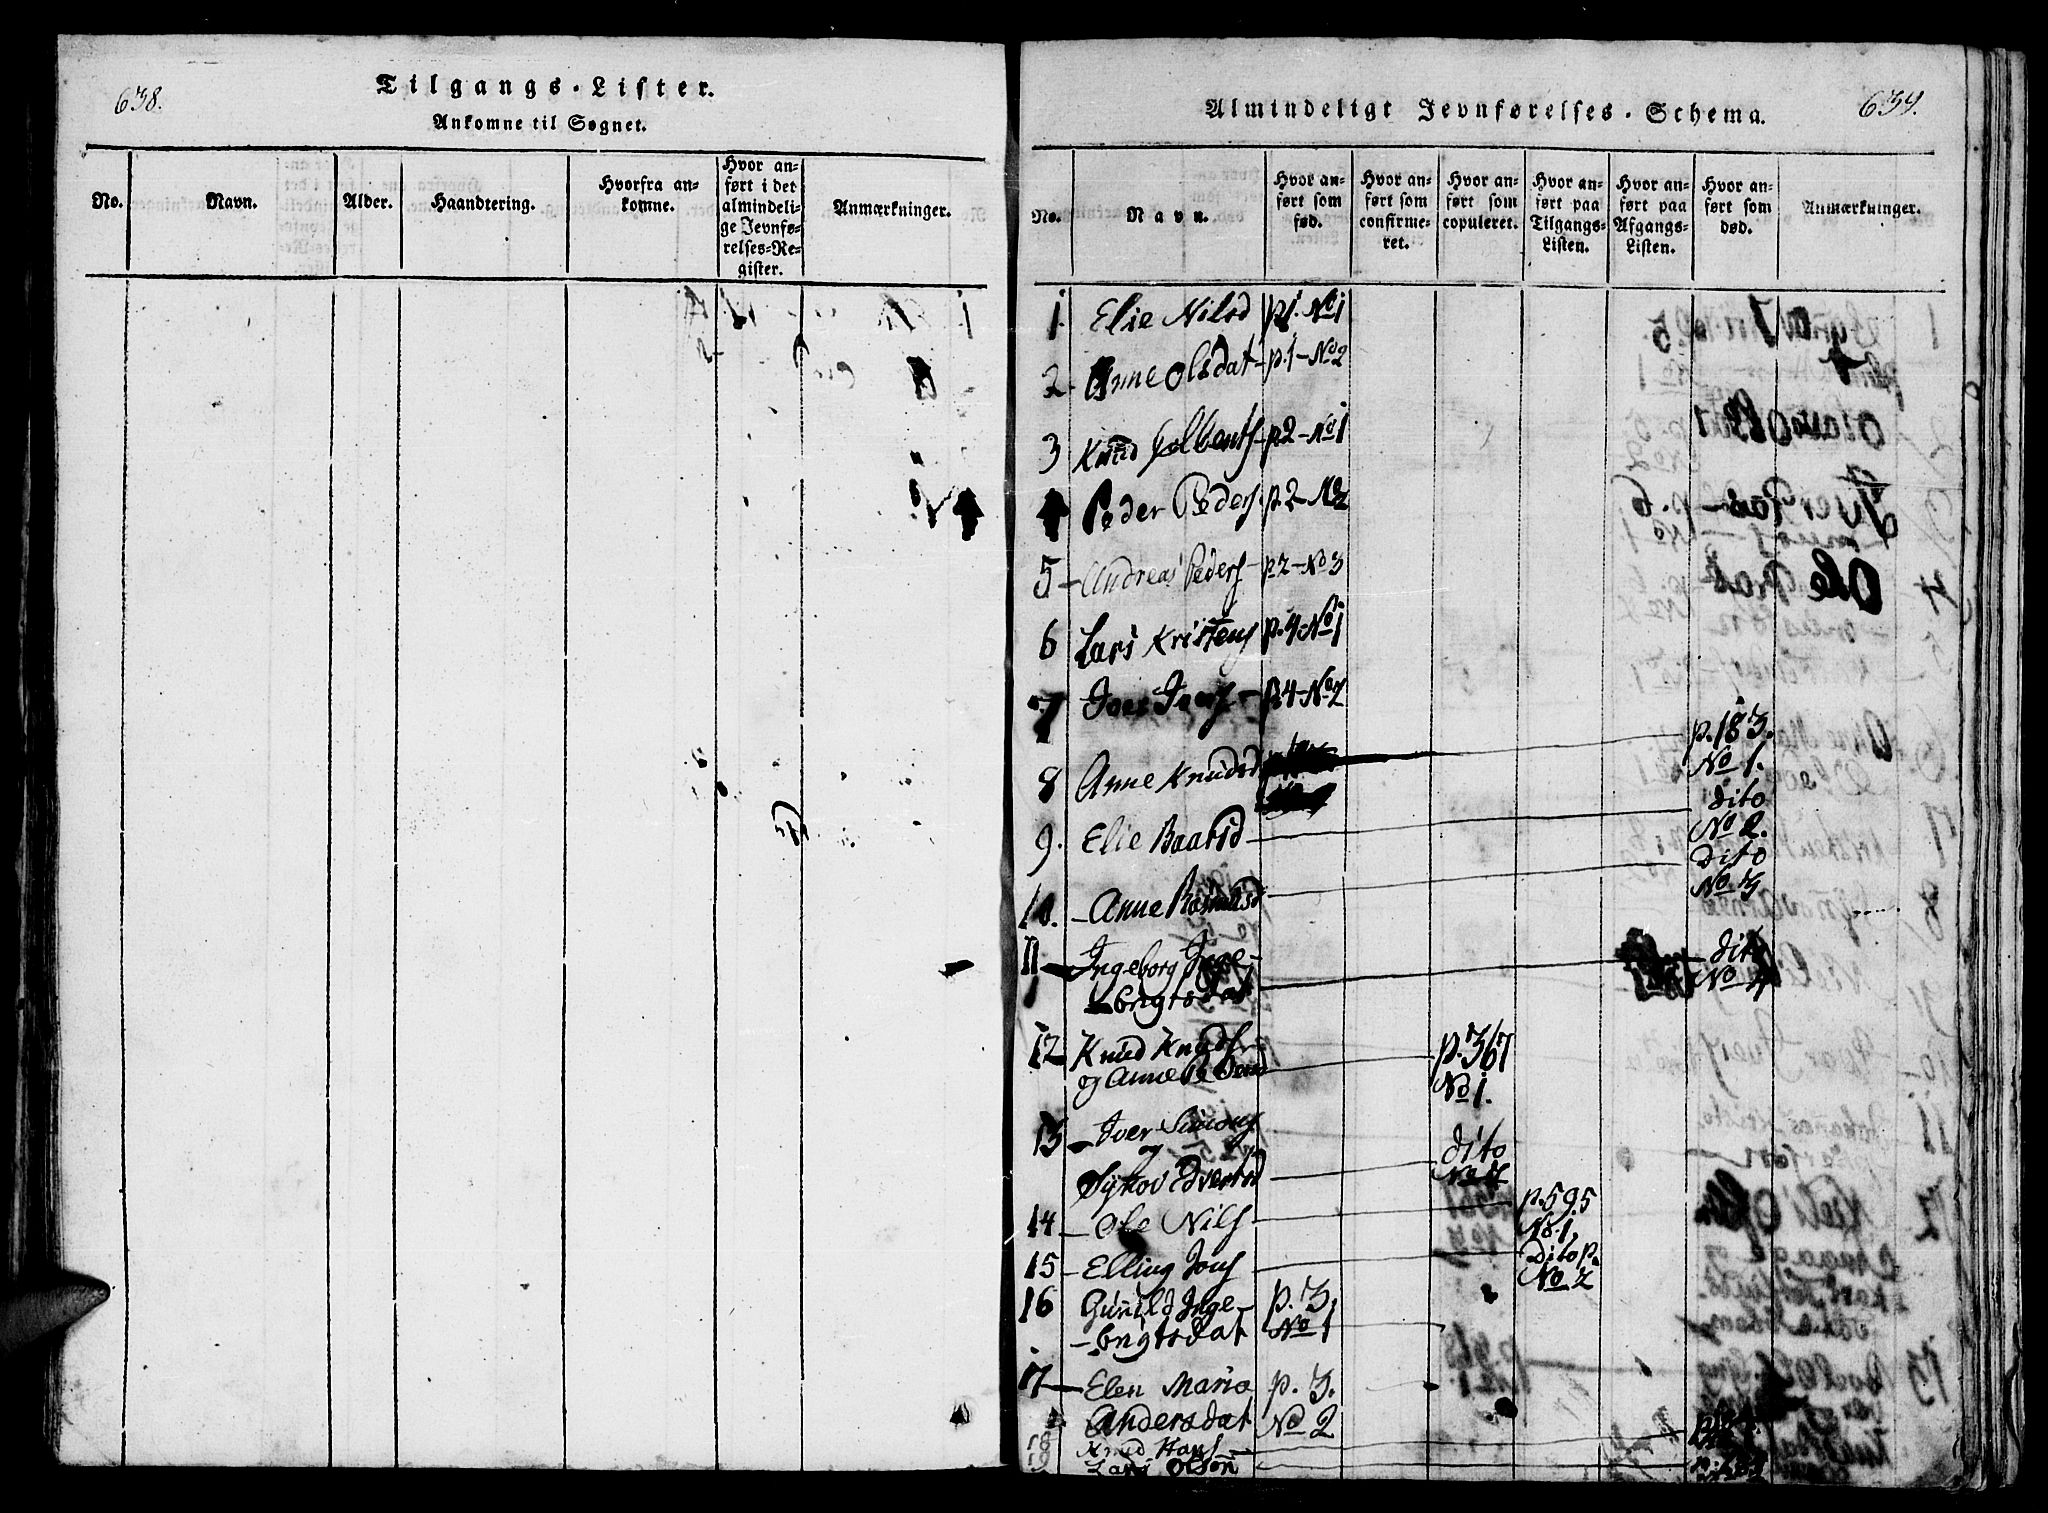 638.
Tilgangs-Lister.
Ankomne til Sognet.
No.
Navn.
Alder.
Haandtering.
Hvorfra an-
komne.
Hvor an-
ført i det
almindeli-
ge Jevnfø-
relses-Re-
gister.
Anmærkninger.
Almindeligt Jevnførelses-Schema.
639.
No.
Navn.
Hvor an-
ført som
fød.
Hvor an-
ført som
confirme-
ret.
Hvor an-
ført som
copuleret.
Hvor an-
ført paa
Tilgangs-
Listen.
Hvor an-
ført paa
Afgangs-
Listen.
Hvor an-
ført som
død.
Anmærkninger.
1. Elie Nilsd p1. No 1
2 - Anne Olsdat - p.1 - No 2
3 Knud - p2 - No 1
Peder Peders. p.2 - No 2
5 - Andreas Peders - p2 - No 3
6 Lars Kristens p.4 - No 1
7 Iver Ivers - p.4 - No 2
8 Anne Knudsd p.183. No 1.
9. Elie Baarsd dito No 2.
10. - Anne Rasmusd dito No 3
11 - Ingeborg Inge-
- brigtsdat dito No 4
12 - Knud Knuds
og Anne p.367 No 1.
13 - Iver Simons
og
Edvardsd dito No 2
14 - Ole Nils p.595 No. 1.
15 - Elling Jons Dito p. No 2
16 Gunild Inge-
- brigtsdat p. 3. No 1
17 - Elen Maria p. 3.
Andersdat No 2
18 Knud Hans
19 Lars Olsøn